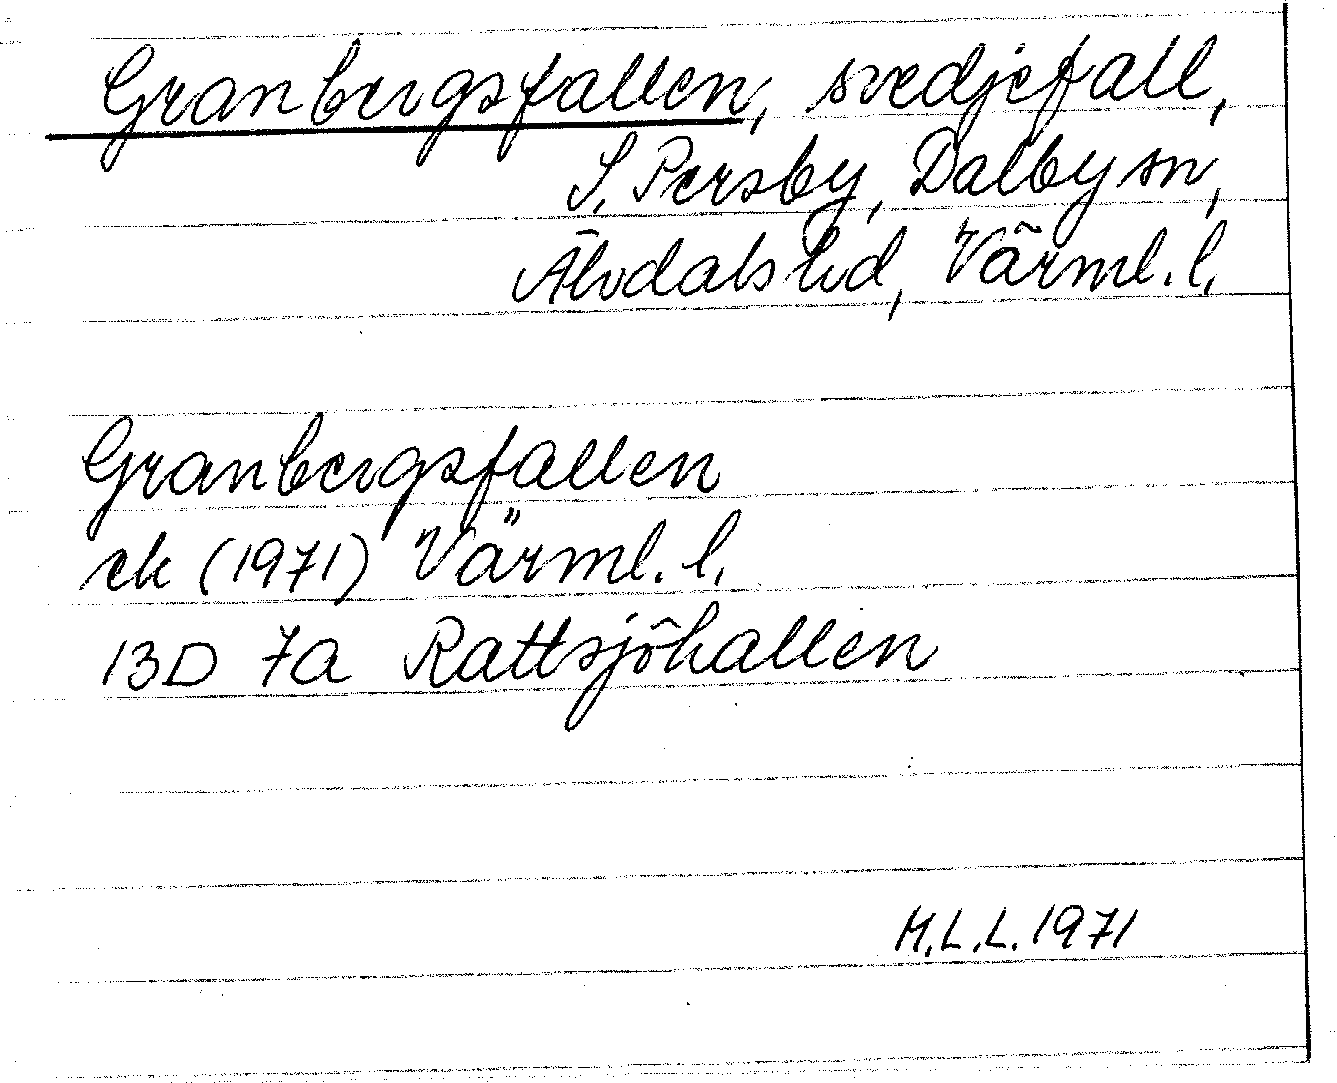 Granbergsfallen, svedjefall,
S. Persby, Dalby sn,
Älvdals hd, Värml. l.
Granbergsfallen
ek (1971) Värml. l.
13D 7a Rattsjöhallen
M.L.L. 1971